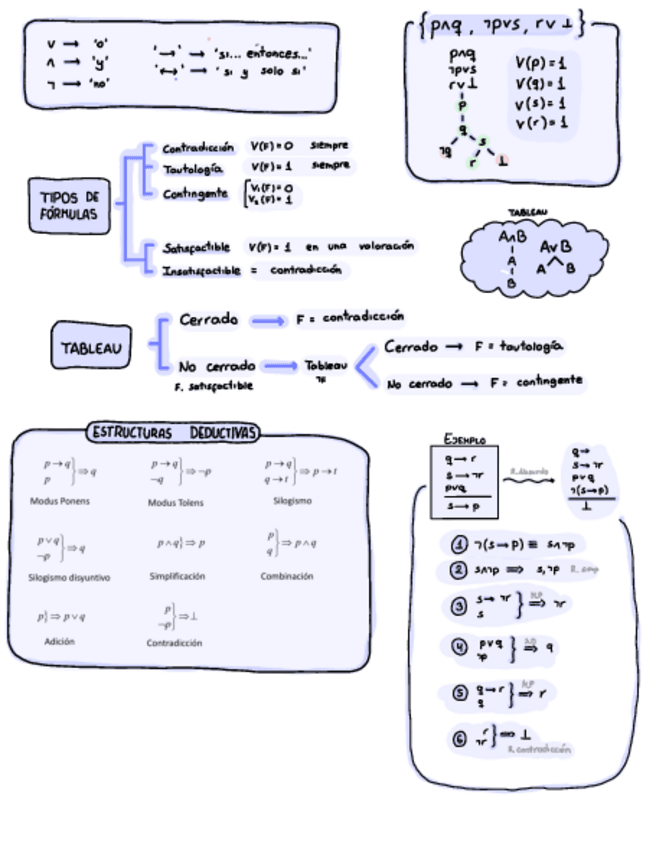 ∨ → 'o'
∧ → 'y'
¬ → 'no'
'→' → 'si... entonces...'
'↔' → 'si y solo si'
{p∧q, ¬p∨s, r∨⊥}
p∧q
¬p∨s
r∨⊥
p
q
¬q s
r ⊥
V(p)=1
V(q)=1
V(s)=1
V(r)=1
TIPOS DE
FÓRMULAS
Contradicción V(F)=0 siempre
Tautología V(F)=1 siempre
Contingente V₁(F)=0
V₂(F)=1
Satisfactible V(F)=1 en una valoración
Insatisfactible = contradicción
TABLEAU
A∧B
A
B
A∨B
A B
TABLEAU
Cerrado → F = contradicción
No cerrado → Tableau
F. satisfactible ¬F
Cerrado → F = tautología
No cerrado → F = contingente
ESTRUCTURAS DEDUCTIVAS
p→q
p } ⇒ q
Modus Ponens
p→q
¬q } ⇒ ¬p
Modus Tolens
p→q
q→r } ⇒ p→r
Silogismo
p∨q
¬p } ⇒ q
Silogismo disyuntivo
p∧q} ⇒ p
Simplificación
p
q } ⇒ p∧q
Combinación
p} ⇒ p∨q
Adición
p
¬p } ⇒ ⊥
Contradicción
EJEMPLO
q→r
s→¬r
p∨q
s→p
R. Absurdo
q→
s→¬r
p∨q
¬(s→p)
⊥
① ¬(s→p) ≡ s∧¬p
② s∧¬p ⇒ s,¬p
③ s→¬r
s } ⇒ ¬r
MP
④ p∨q
¬p } ⇒ q
⑤ q→r
q } ⇒ r
MP
⑥ r
¬r } ⇒ ⊥
R. contradicción